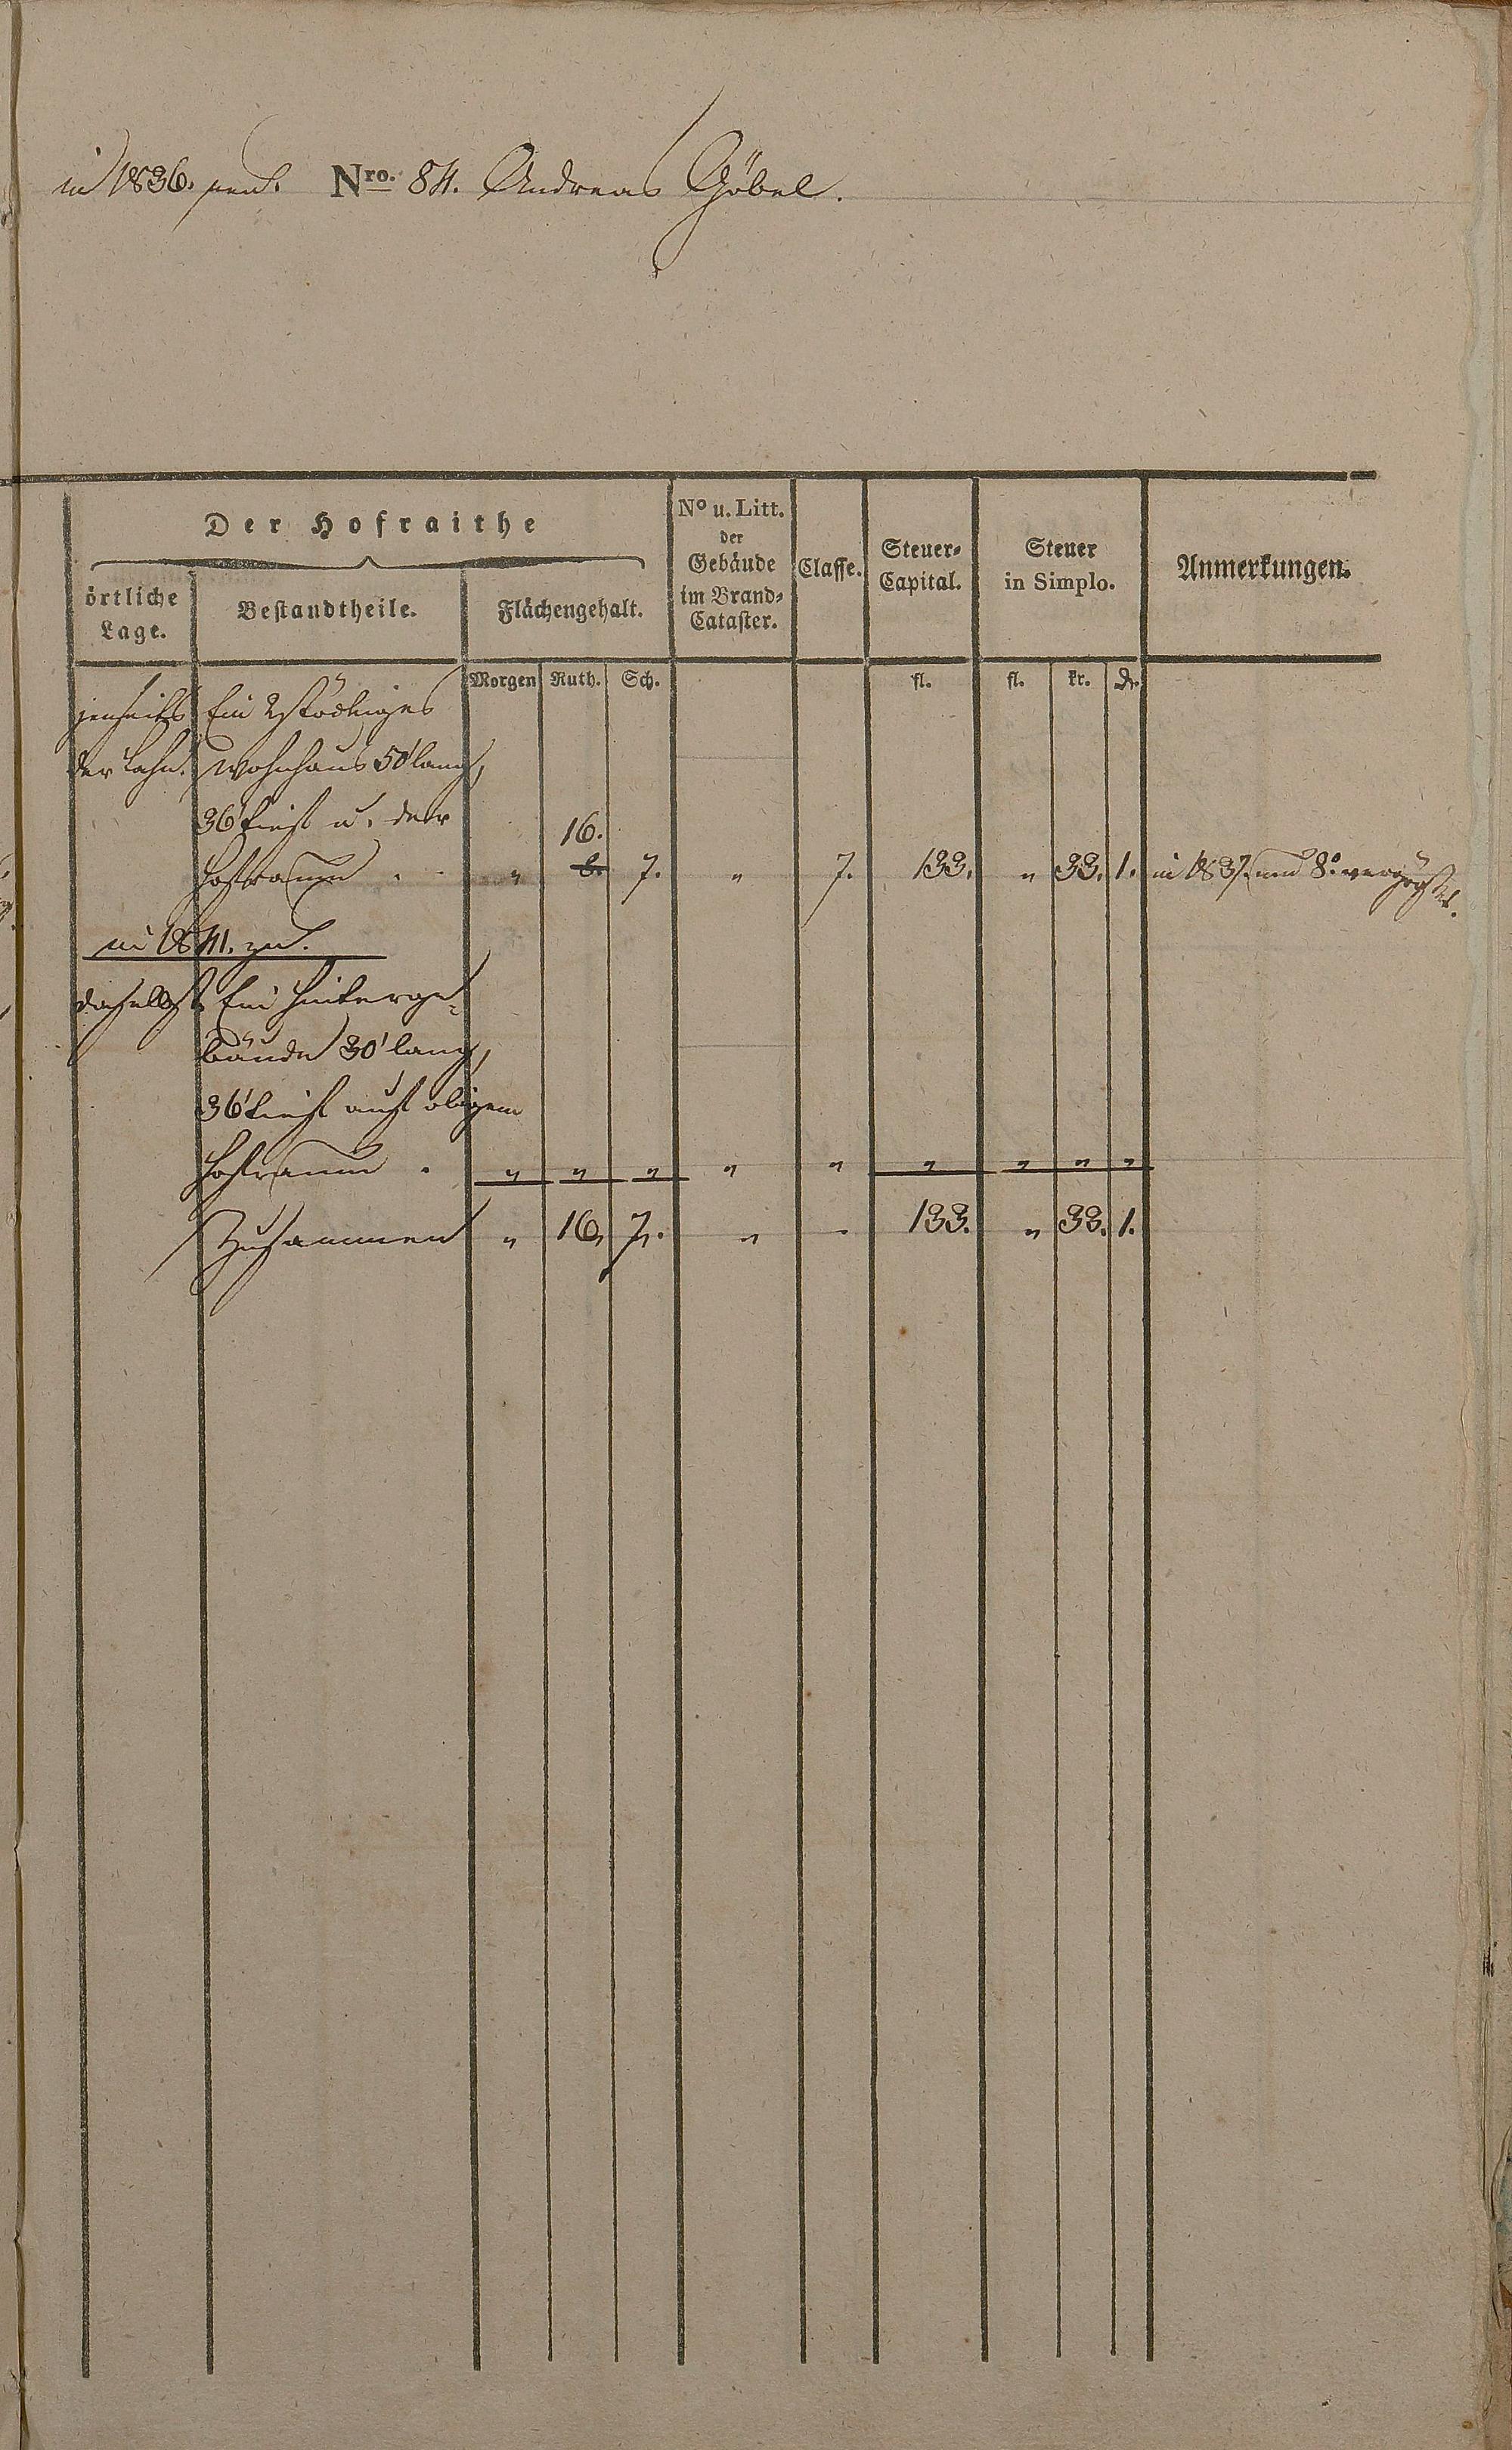 in 1836. neu. Nro. 84. Andreas Göbel.
Der Hofraithe
örtliche Lage.
Bestandtheile.
Flächengehalt.
No u. Litt. der Gebäude im Brand-Cataster.
Classe.
Steuer-Capital.
Steuer in Simplo.
Anmerkungen.
Morgen Ruth. Sch. fl. fl. kr. d.
jenseits Ein 2stöckiges
der Lahn. Wohnhaus 50' lang,
36' tief u. der
16.
Hofraum . . " 8. 7. " 7. 133. " 33. 1. in 1837. um 8° vergrößert.
in 1841. zu.
daselbst Ein Hinterge-
bäude 30' lang,
36' tief auf obigem
Hofraum . " " " " " " " " "
Zusammen " 16. 7. " - 133. " 33. 1.